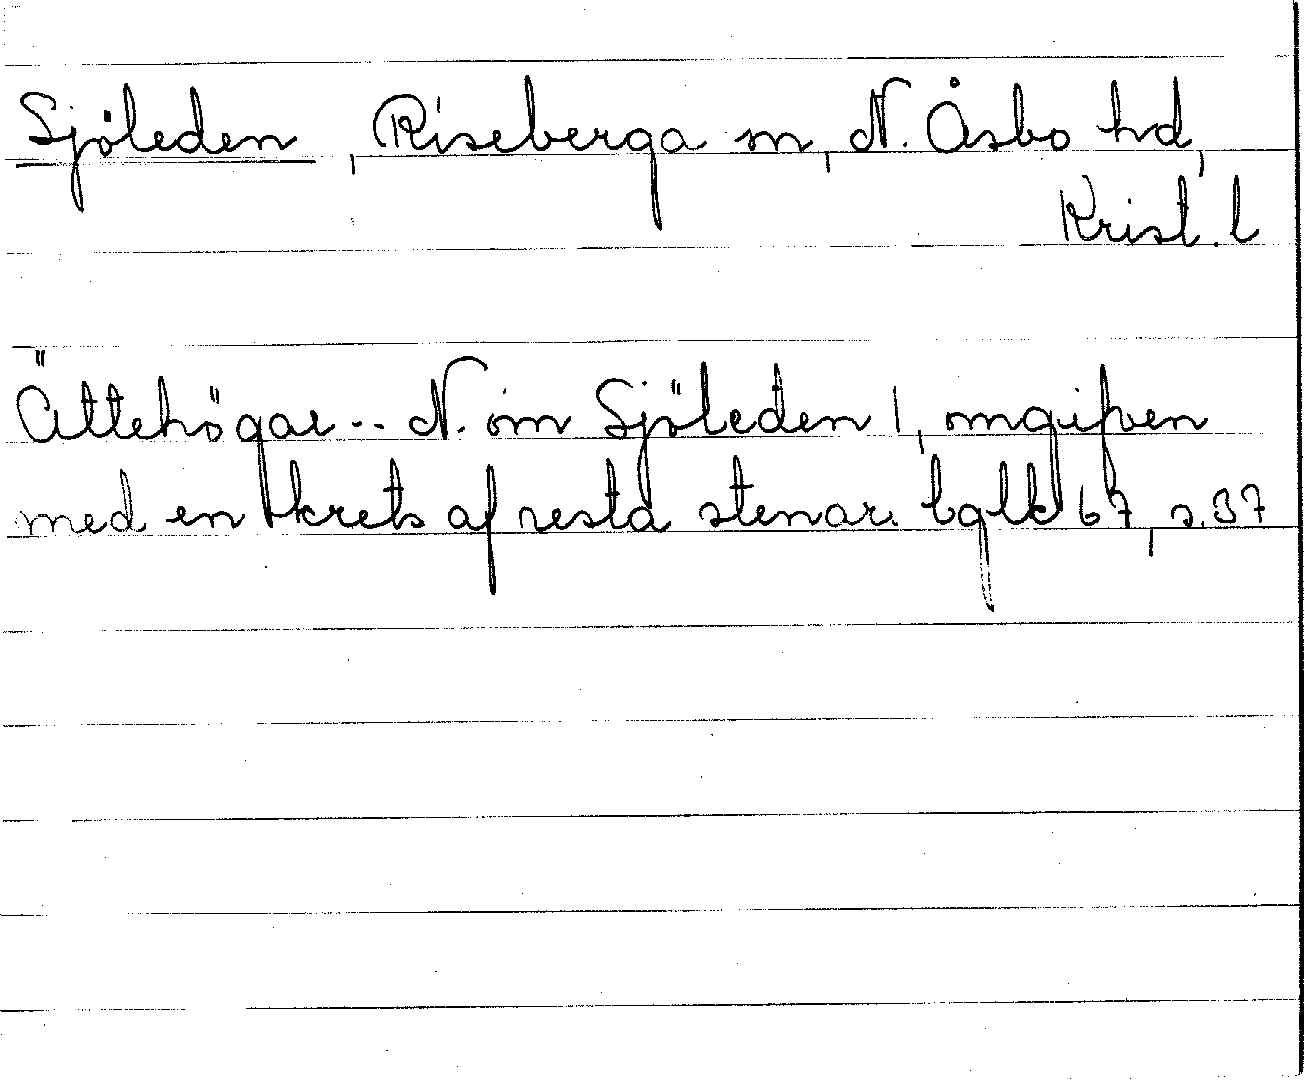 Sjöleden, Riseberga sn, N. Åsbo hd,
Krist. l
Ättehögar -- N. om Sjöleden 1, omgifven
med en krets af resta stenar. bglk 67, s. 37